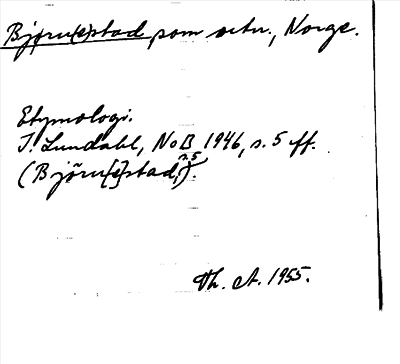 Bjørn(e)stad som ortn., Norge.
Etymologi.
I. Lundahl, NoB 1946, s. 5 ff.
(Bjørn[e]stad, s. 5).
Th. A. 1955.